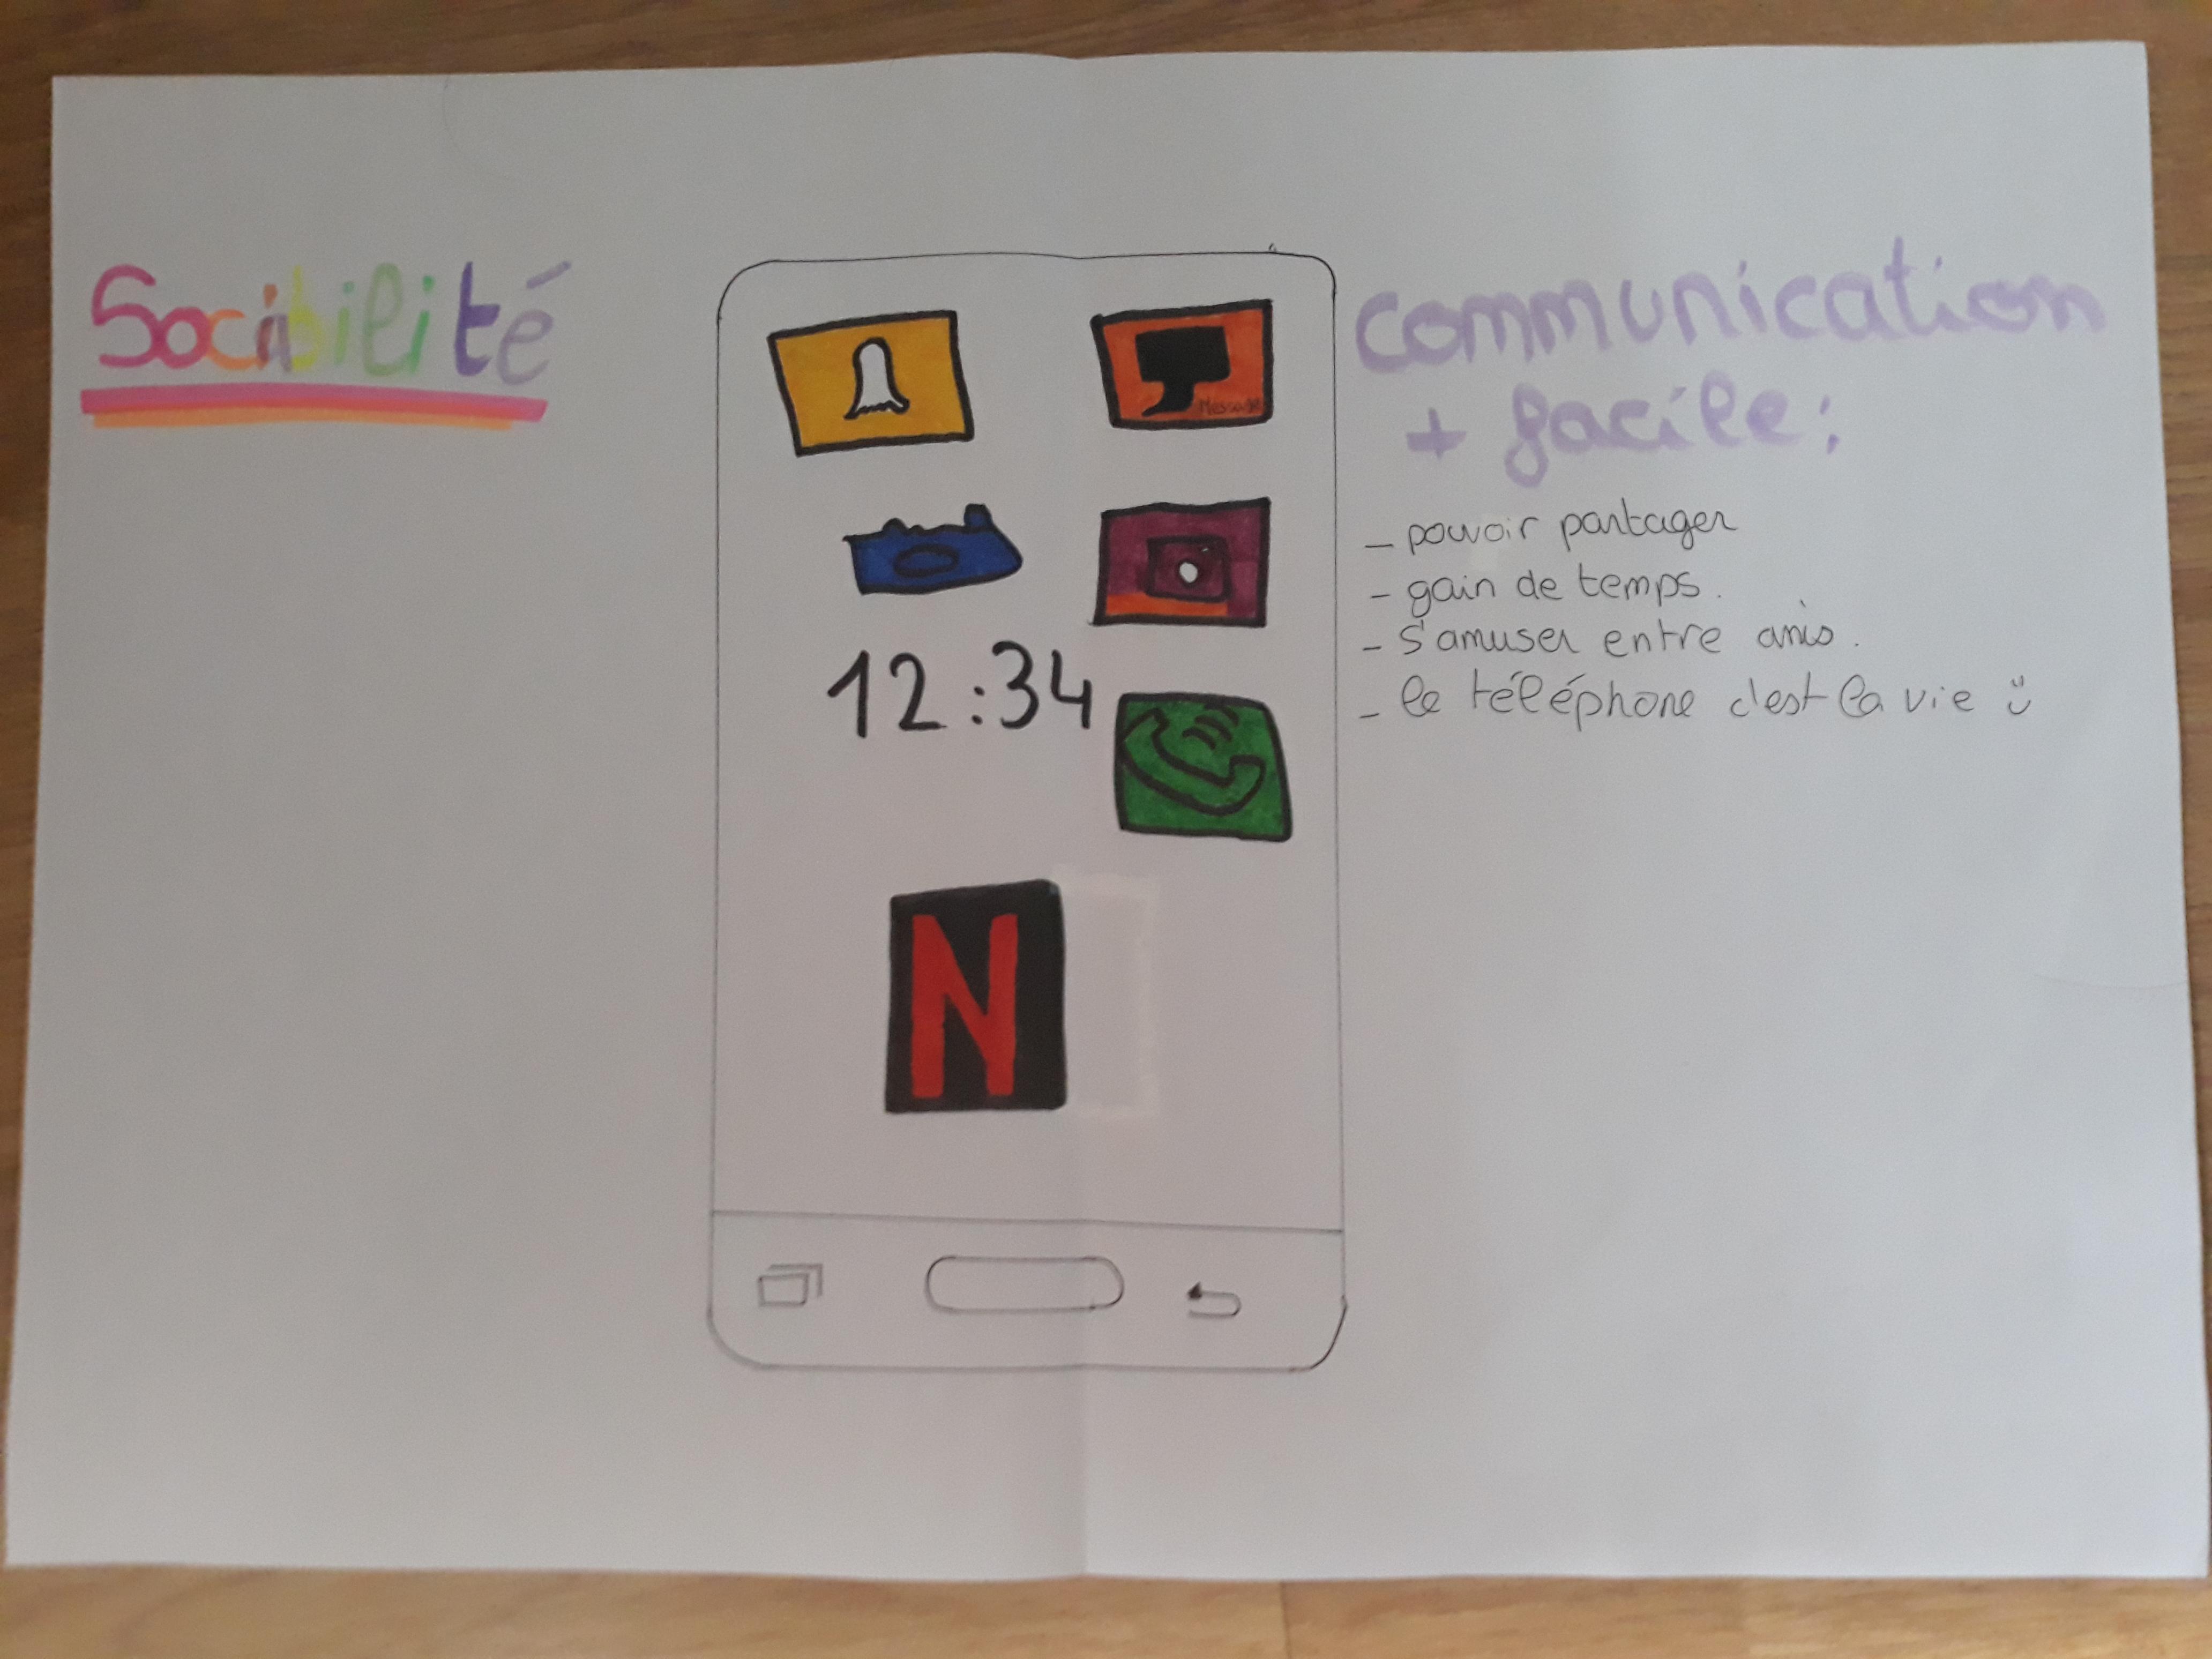 Sociabilité
Message
12:34
N
communication
+ facile :
- pouvoir partager
- gain de temps.
- s'amuser entre amis.
- le téléphone c'est la vie ü